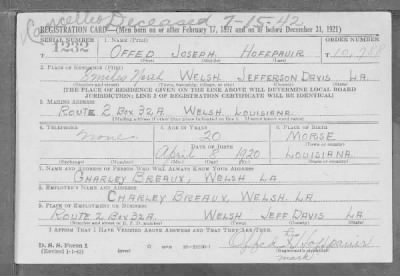 Cancelled Deceased 7-15-42
REGISTRATION CARD—(Men born on or after February 17, 1897 and on or before December 31, 1921)
SERIAL NUMBER 1. NAME (Print) ORDER NUMBER
T 1232 OFFED JOSEPH HOFFPAUIR
(First) (Middle) (Last)
2. PLACE OF RESIDENCE (Print)
5 miles North WELSH JEFFERSON DAVIS LA.
(Number and street) (Town, township, village, or city) (County) (State)
[THE PLACE OF RESIDENCE GIVEN ON THE LINE ABOVE WILL DETERMINE LOCAL BOARD
JURISDICTION; LINE 2 OF REGISTRATION CERTIFICATE WILL BE IDENTICAL]
3. MAILING ADDRESS
ROUTE 2 BOX 32A WELSH LOUISIANA
[Mailing address if other than place indicated on line 2. If same insert word same]
4. TELEPHONE 5. AGE IN YEARS 6. PLACE OF BIRTH
none 20 MORSE
DATE OF BIRTH (Town or county)
APRIL 8 1920 LOUISIANA
(Exchange) (Number) (Mo.) (Day) (Yr.) (State or country)
7. NAME AND ADDRESS OF PERSON WHO WILL ALWAYS KNOW YOUR ADDRESS
CHARLEY BREAUX, WELSH LA
8. EMPLOYER'S NAME AND ADDRESS
CHARLEY BREAUX, WELSH, LA.
9. PLACE OF EMPLOYMENT OR BUSINESS
ROUTE 2 BOX 32A WELSH JEFF DAVIS LA
(Number and street or R. F. D. number) (Town) (County) (State)
I AFFIRM THAT I HAVE VERIFIED ABOVE ANSWERS AND THAT THEY ARE TRUE.
D. S. S. Form 1
(Revised 1-1-42) (over)
Offed X Hoffpauir
mark